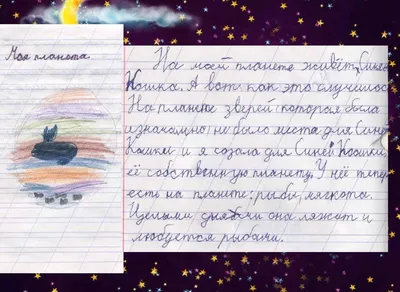 Моя планета
На моей планете живёт Синея
Кошка. А вот как это случилось
На планете зверей которая была
изначально не было места для Синей
Кошки и я создала для Синей Кошки,
её собственную планету. У неё теперь
есть на планете: рыбы, мягкота.
Целыми днями она ляжит и
любуется рыбами.